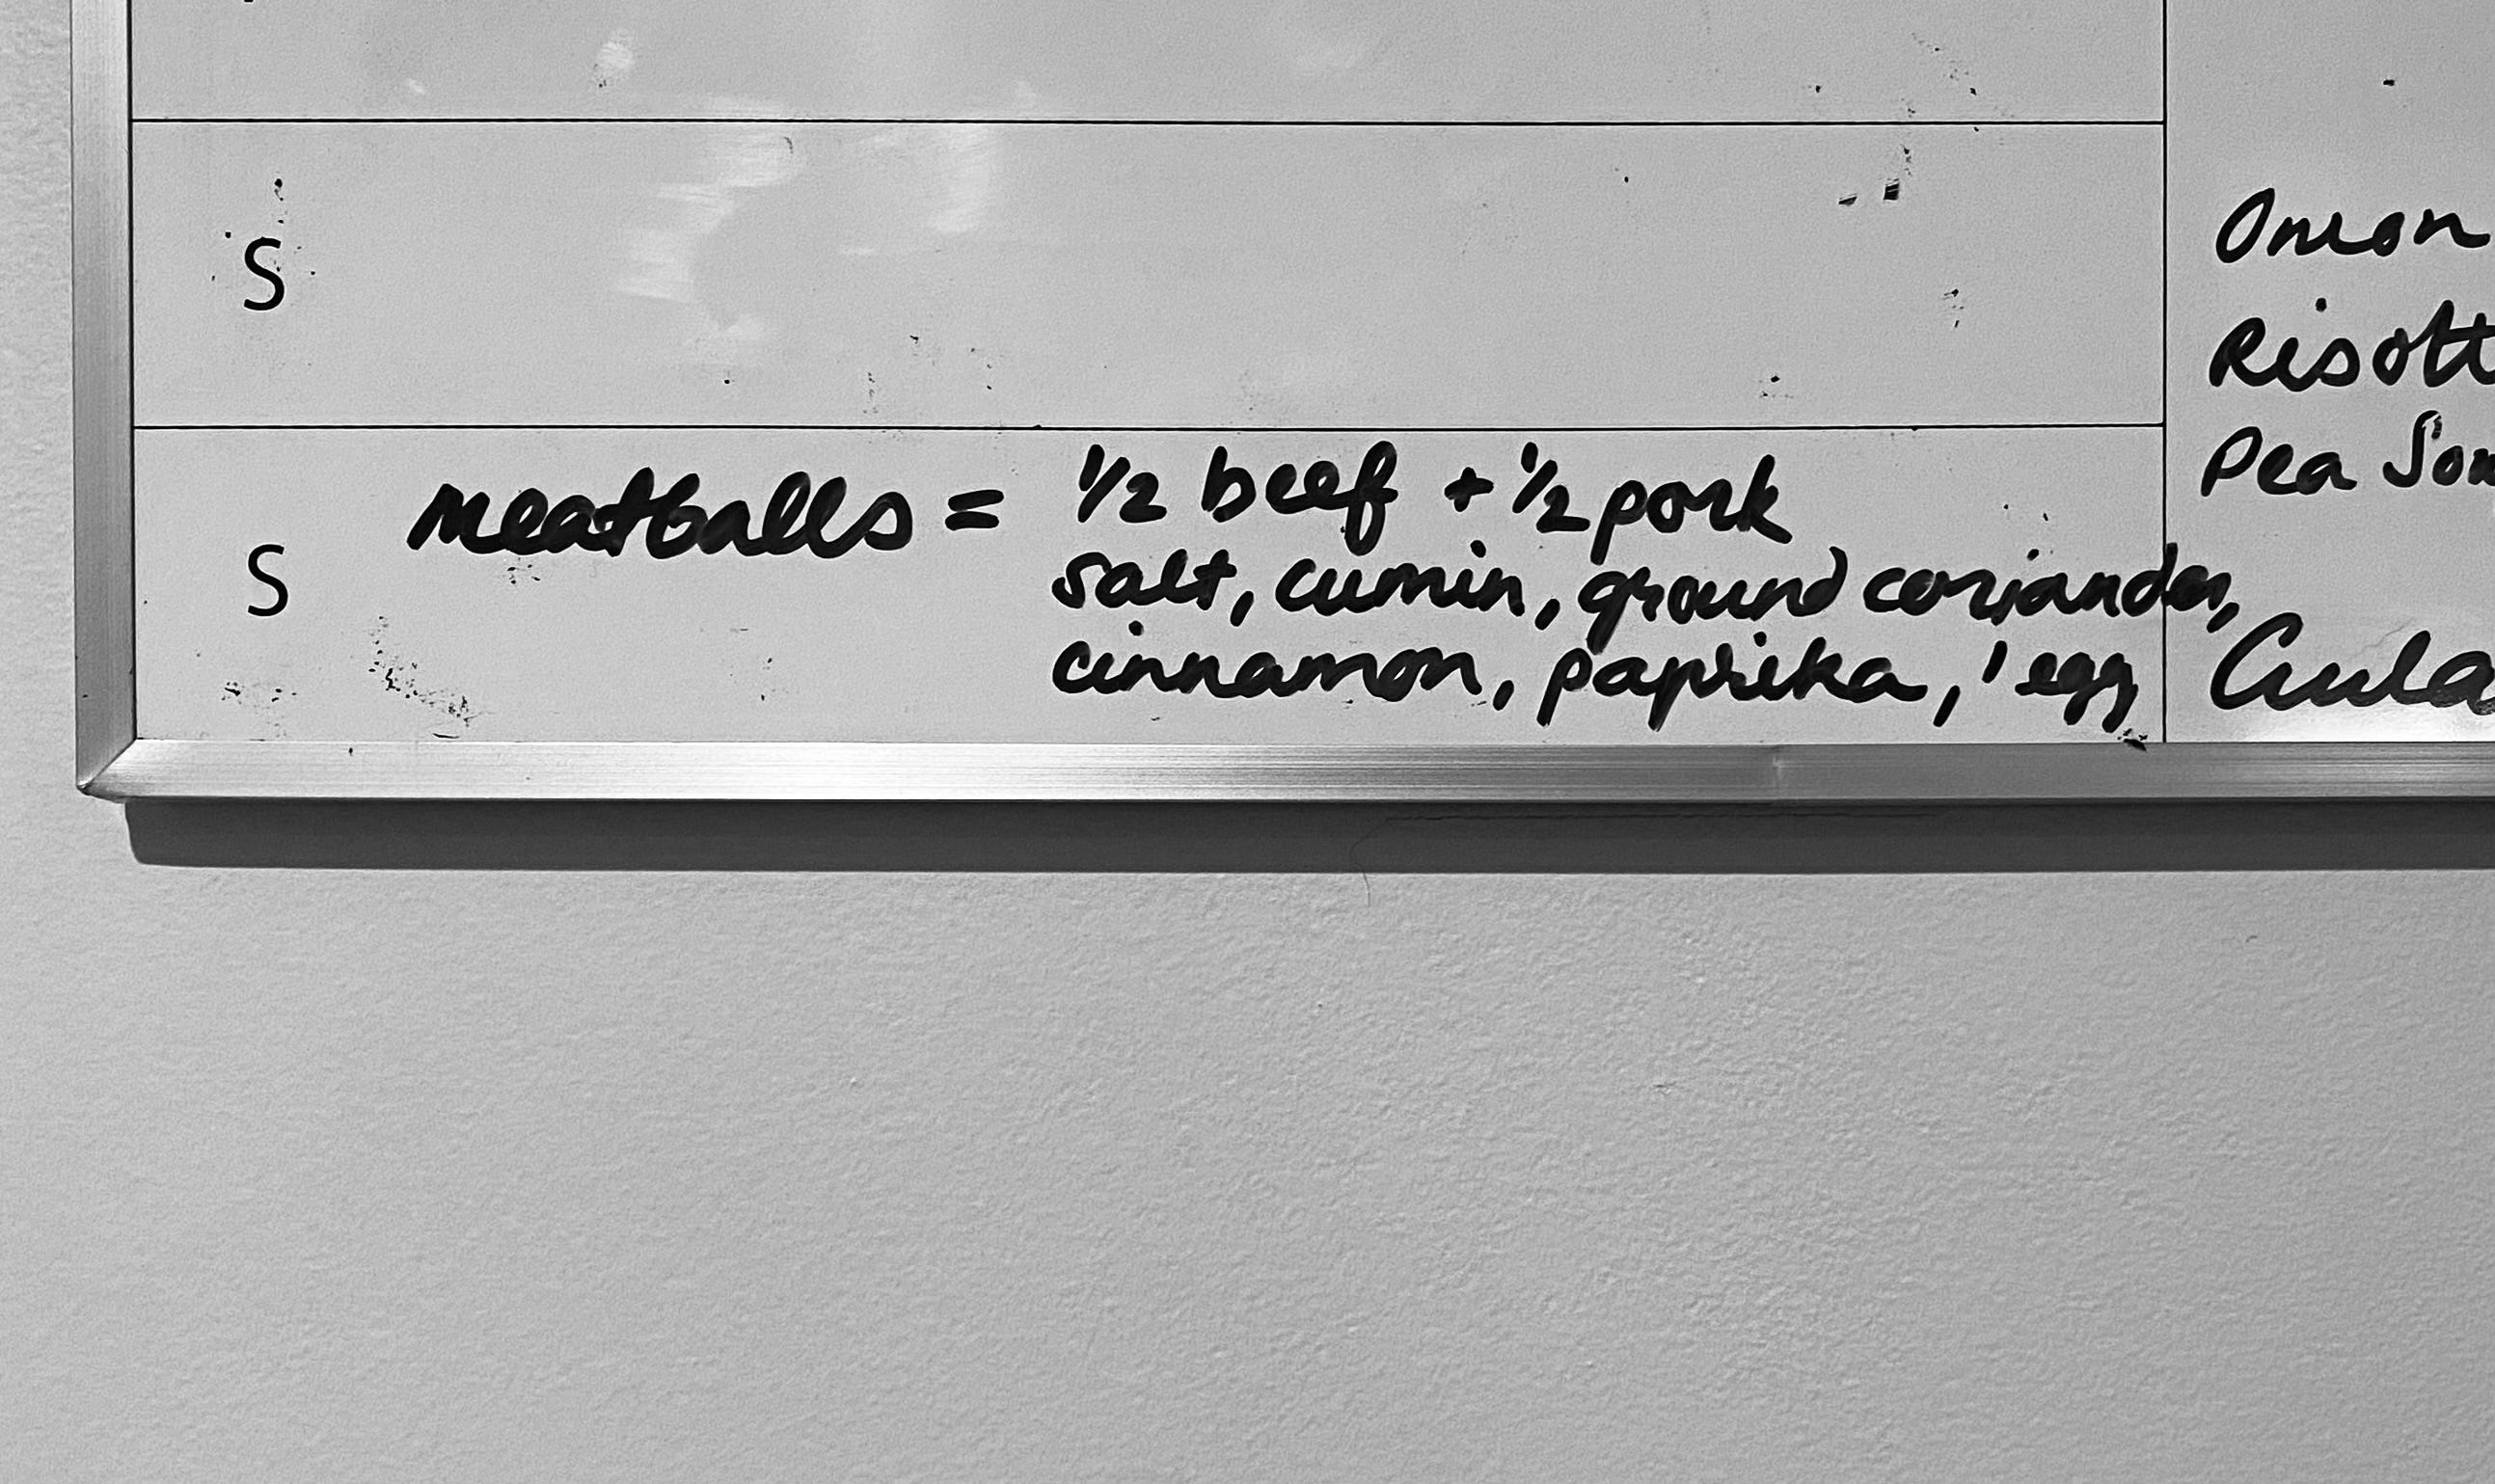 S
S
meatballs = 1/2 beef + 1/2 pork
salt, cumin, ground coriander,
cinnamon, paprika, 1 egg
Onion
Risott
Pea Sou